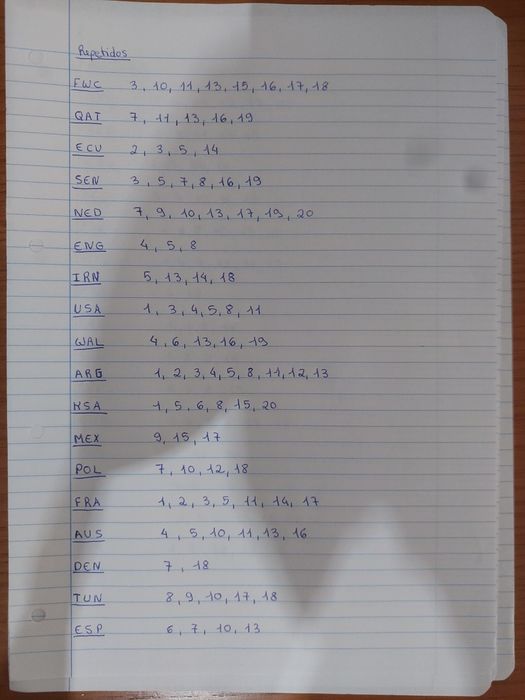 Repetidos
FWC 3, 10, 11, 13, 15, 16, 17, 18
QAT 7, 11, 13, 16, 19
ECU 2, 3, 5, 14
SEN 3, 5, 7, 8, 16, 19
NED 7, 9, 10, 13, 17, 19, 20
ENG 4, 5, 8
IRN 5, 13, 14, 18
USA 1, 3, 4, 5, 8, 11
WAL 4, 6, 13, 16, 19
ARG 1, 2, 3, 4, 5, 8, 11, 12, 13
KSA 1, 5, 6, 8, 15, 20
MEX 9, 15, 17
POL 7, 10, 12, 18
FRA 1, 2, 3, 5, 11, 14, 17
AUS 4, 5, 10, 11, 13, 16
DEN 7, 18
TUN 8, 9, 10, 17, 18
ESP 6, 7, 10, 13